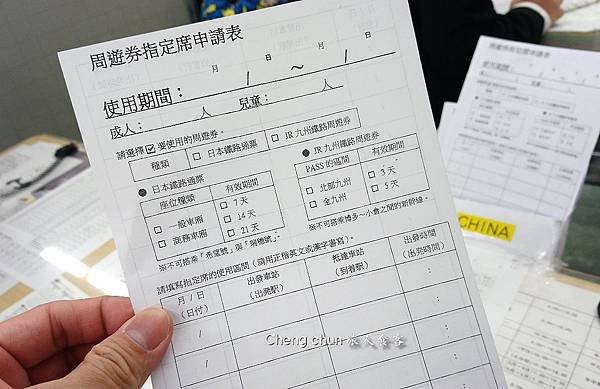 周遊券指定席申請表
月 日 月 日
使用期間： / ～ /
成人： 人 兒童： 人
請選擇☑要使用的周遊券。
種類 □ 日本鐵路通票 □ JR 九州鐵路周遊券
●日本鐵路通票
座位種類 有效期間
□ 一般車廂
□ 商務車廂
□ 7 天
□ 14 天
□ 21 天
※不可搭乘「希望號」與「瑞穗號」。
● JR 九州鐵路周遊券
PASS 的區間 有效期間
□ 北部九州
□ 全九州
□ 3 天
□ 5 天
※不可搭乘博多～小倉之間的新幹線。
請填寫指定席的使用區間（請用正楷英文或漢字書寫）。
月 / 日
（日付）
出發車站
（出発駅）
抵達車站
（到着駅）
出發時間
（出発時間）
/ ：
/ ：
/ ：
Cheng chun 旅人食客
周遊券指定席申請表
CHINA